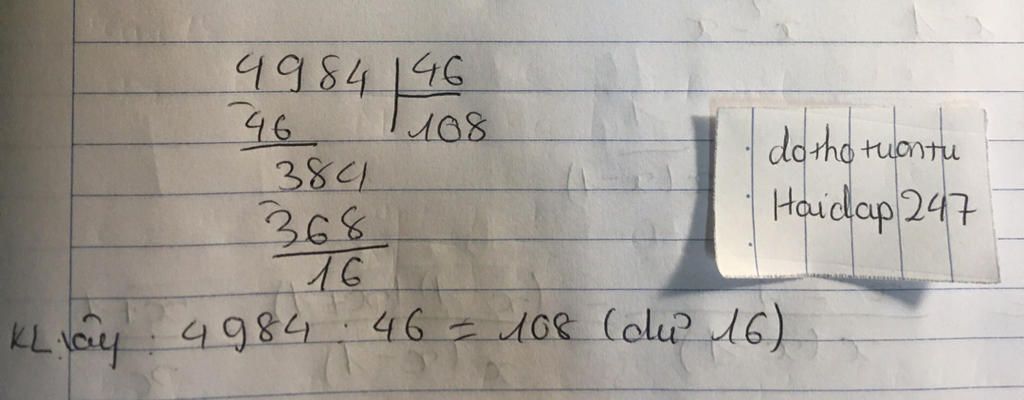 4984 46
46 108
384
368
16
KL: Vậy : 4984 : 46 = 108 (dư 16)
dothotuontu
Hoidap247